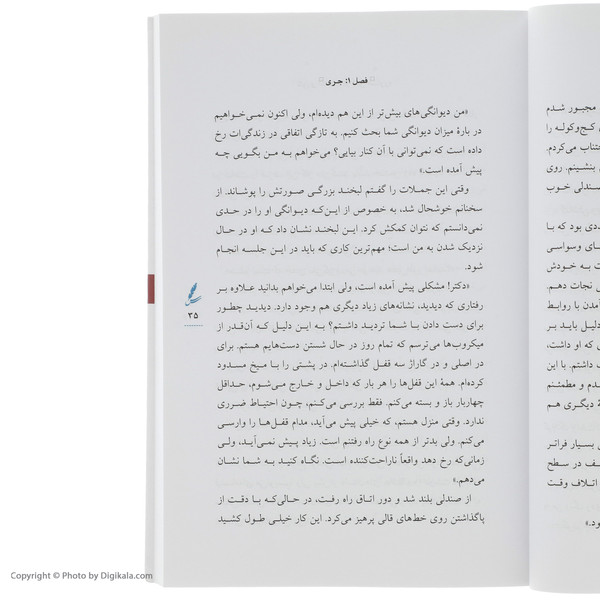 مجبور شدم
کج‌وکوله را
جتناب می‌کردم.
بنشینم. روی
صندلی خوب
ددی بود که با
ای وسواسی
ت به خودش
نجات دهم.
آمدن با روابط
دلیل باید بر
ی که او داشت،
داشتم. با این
دم و مطمئنم
دیگری هم
بسیار فراتر
ف در سطح
اتلاف وقت
ود.»
فصل ۱: جری
«من دیوانگی‌های بیش‌تر از این هم دیده‌ام، ولی اکنون نمی‌خواهیم
در بارهٔ میزان دیوانگی شما بحث کنیم. به تازگی اتفاقی در زندگی‌ات رخ
داده است که نمی‌توانی با آن کنار بیایی؟ می‌خواهم به من بگویی چه
پیش آمده است.»
وقتی این جملات را گفتم لبخند بزرگی صورتش را پوشاند. از
سخنانم خوشحال شد، به خصوص از این‌که دیوانگی او را در حدی
نمی‌دانستم که نتوان کمکش کرد. این لبخند نشان داد که او در حال
نزدیک شدن به من است؛ مهم‌ترین کاری که باید در این جلسه انجام
شود.
«دکتر! مشکلی پیش آمده است، ولی ابتدا می‌خواهم بدانید علاوه بر
رفتاری که دیدید، نشانه‌های زیاد دیگری هم وجود دارد. دیدید چطور
برای دست دادن با شما تردید داشتم؟ به این دلیل که آن‌قدر از
میکروب‌ها می‌ترسم که تمام روز در حال شستن دست‌هایم هستم. برای
در اصلی و در گاراژ سه قفل گذاشته‌ام. در پشتی را با میخ مسدود
کرده‌ام. همهٔ این قفل‌ها را هر بار که داخل و خارج می‌شوم، حداقل
چهاربار باز و بسته می‌کنم. فقط بررسی می‌کنم، چون احتیاط ضرری
ندارد. وقتی منزل هستم، که خیلی پیش می‌آید، مدام قفل‌ها را وارسی
می‌کنم. ولی بدتر از همه نوع راه رفتنم است. زیاد پیش نمی‌آید، ولی
زمانی‌که رخ دهد واقعاً ناراحت‌کننده است. نگاه کنید به شما نشان
می‌دهم.»
از صندلی بلند شد و دور اتاق راه رفت، در حالی‌که با دقت از
پاگذاشتن روی خط‌های قالی پرهیز می‌کرد. این کار خیلی طول کشید
۳۵
Copyright © Photo by Digikala.com